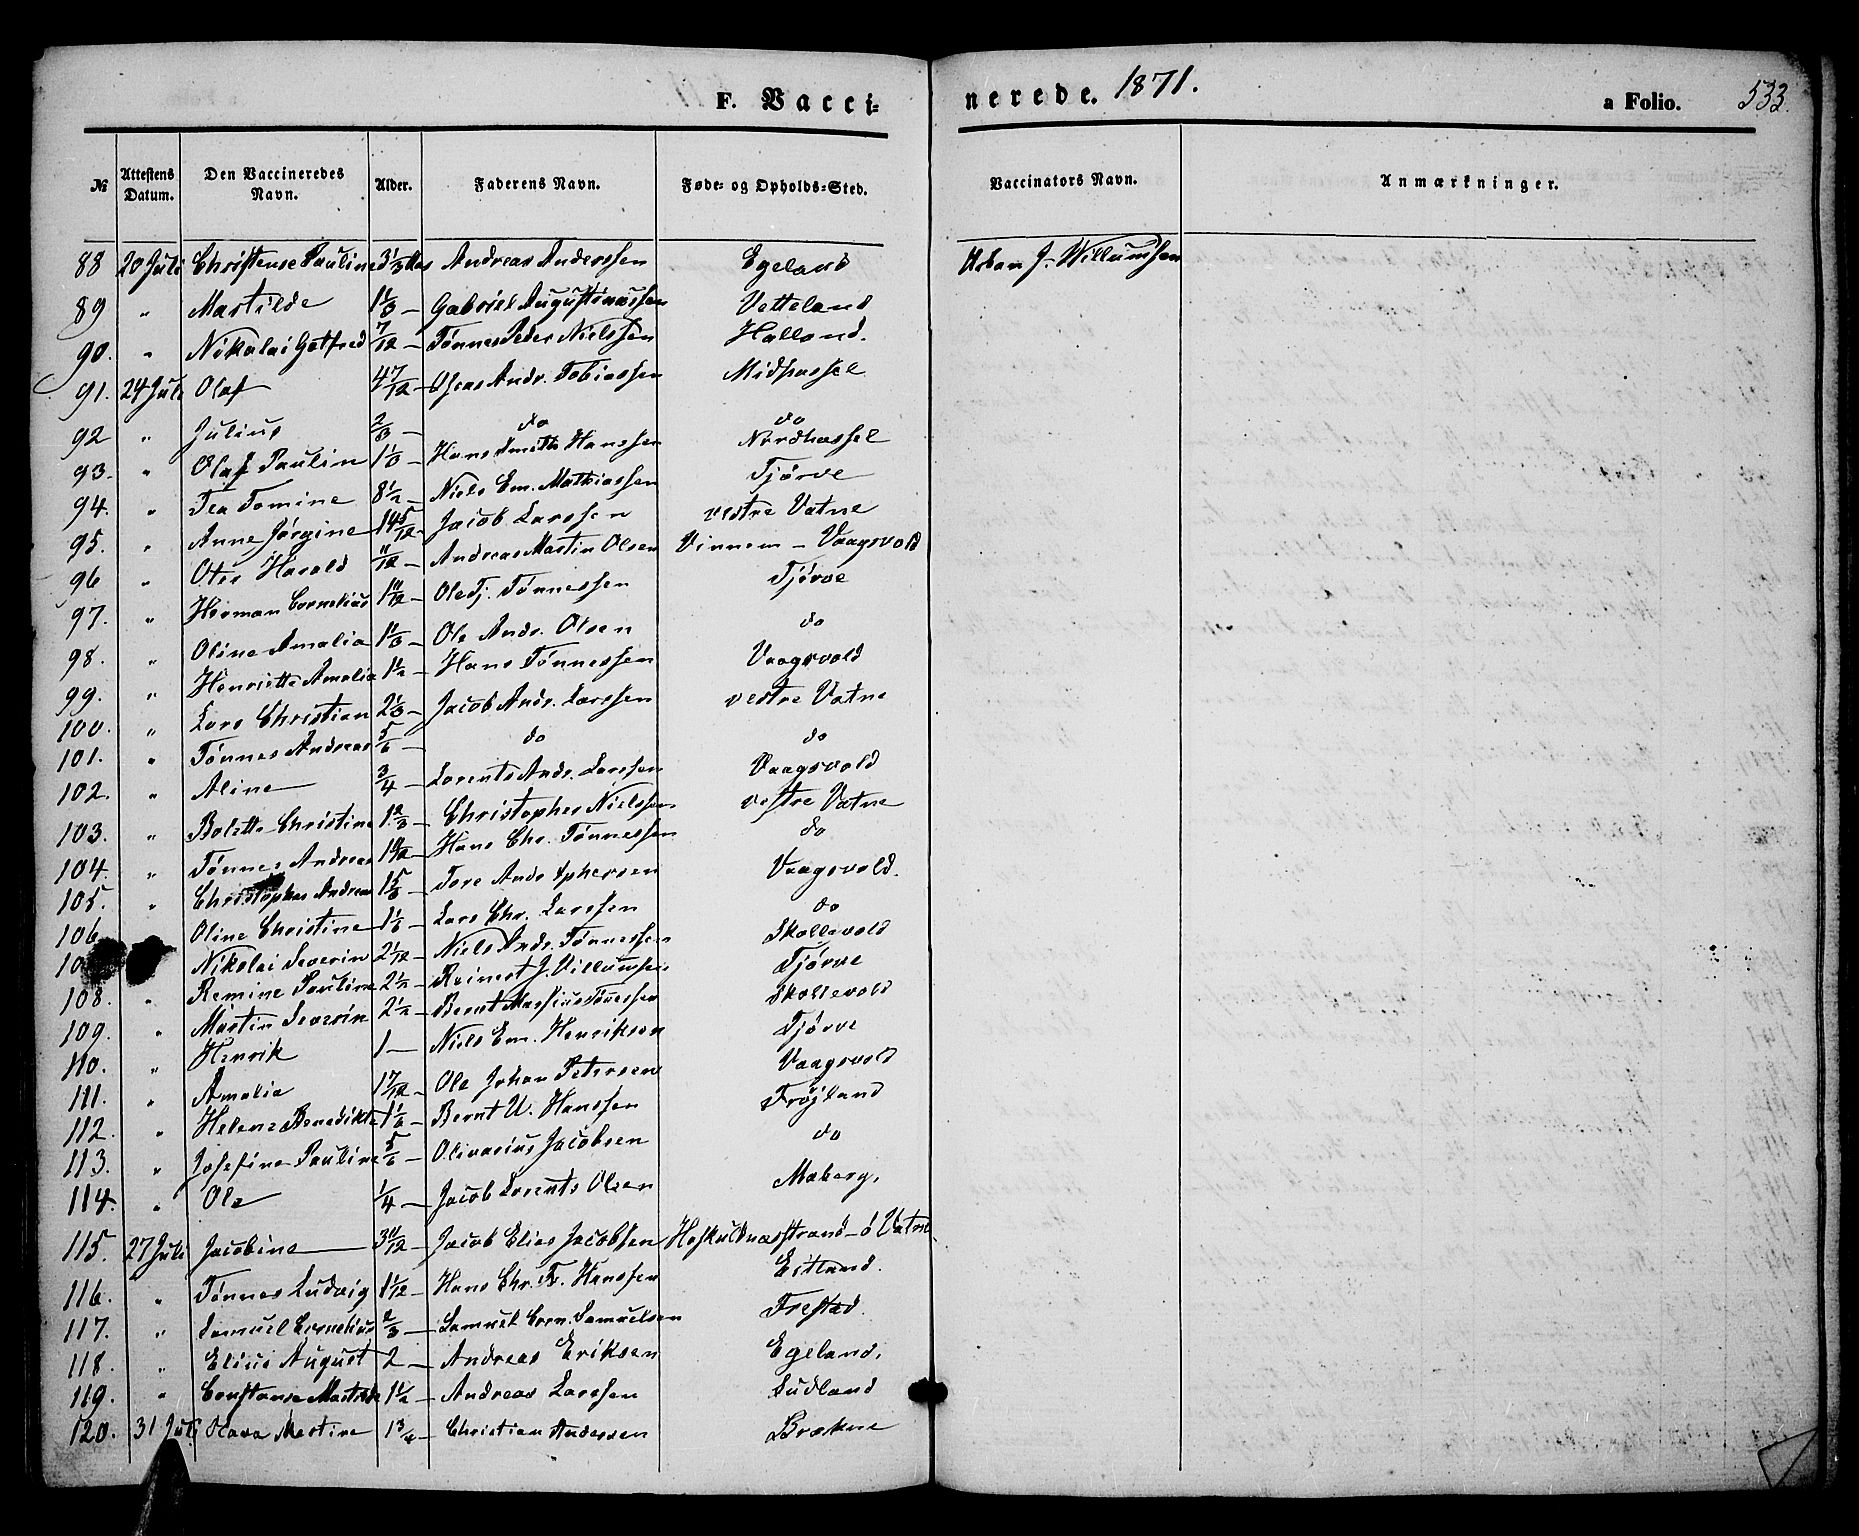 F. Vacci=
nerede. 1871.
a Folio. 533.
№ Attestens Datum. Den Vaccineredes Navn. Alder. Faderens Navn. Føde- og Opholds-Sted. Vaccinators Navn. Anmærkninger.
88 20 Juli Christense Pauline 3 1/3 Andreas Anderssen Egeland Urban J. Willumsen
89 " Mastilde 1 1/3 – Gabriel Augustinussen Vetteland
90. " Nikolai Gotfred 7/12 – Tønnes Peder Nielssen Halland.
91. 24 Juli Olaf 4 7/12 – Oseas Andr. Tobiassen Midhassel
92 " Julius 2/3 – do do
93. " Olaf Paulin 1 1/3 – Hans Hanssen Nordhassel
94. " Tea Tomine 8 1/2 – Niels Em. Mathiassen Tjørve
95. " Anne Jørgine 14 5/12 – Jacob Larssen vestre Vatne
96 " Otto Harald 11/12 – Andreas Martin Olsen Vinnem – Vaagsvold
97. " Herman Cornelius 1 11/12 – Ole Tj. Tønnessen Tjørve
98. " Oline Amalia 1 1/3 – Ole Andr. Olsen do
99. " Henriette Amalia 1 1/2 – Hans Tønnessen Vaagsvold
100. " Lars Christian 2 1/3 – Jacob Andr. Larssen vestre Vatne
101. " Tønnes Andreas 5/6 – do do
102. " Aline 3/4 – Lorents Andr. Larssen Vaagsvold
103. " Bolette Christine 1 2/3 – Christopher Nielssen vestre Vatne
104. " Tønnes Andreas Hans Chr. Tønnessen do
105. " Christopher Andreas Tore Andr. Vaagsvold.
106 Oline Christine 1 1/6 – Lars Chr. Larssen do
10 Nikolai Severin 2 1/12 – Niels Andr. Tønnessen Skollevold
108. " Remine Pauline 2 1/2 – Reinert J. Villumsen Tjørve
109. " Martin Severin 2 1/2 – Bernt Skollevold
110. " Henrik 1 – Niels Em. Henriksen Tjørve
111. " Amalia 1 7/12 – Ole Johan Petersen Vaagsvold
112. " Helene Benedikte 1 1/6 – Bernt U. Hanssen Frøjland
113. " Josefine Pauline 5/6 – Olivarius Jacobsen do
114. " Ole 1/4 – Jacob Lorents Olsen Maberg.
115. 27 Juli Jacobine 3 11/12 – Jacob Elias Jacobsen Hoskuldnæsstrand – ø Vatne
116. " Tønnes Ludvig 1 1/12 – Hans Chr. Fr. Hanssen Eitland.
117. " Samuel Cornelius 2/3 – Samuel Corn. Samuelsen Frestad.
118. " Elius August 2 – Andreas Eriksen Egeland.
119. " Constanse Mastilde 1 1/2 – Andreas Larssen Sudland
120. 31 Juli Olava Mastine 1 3/4 – Christian Andersen Brækne